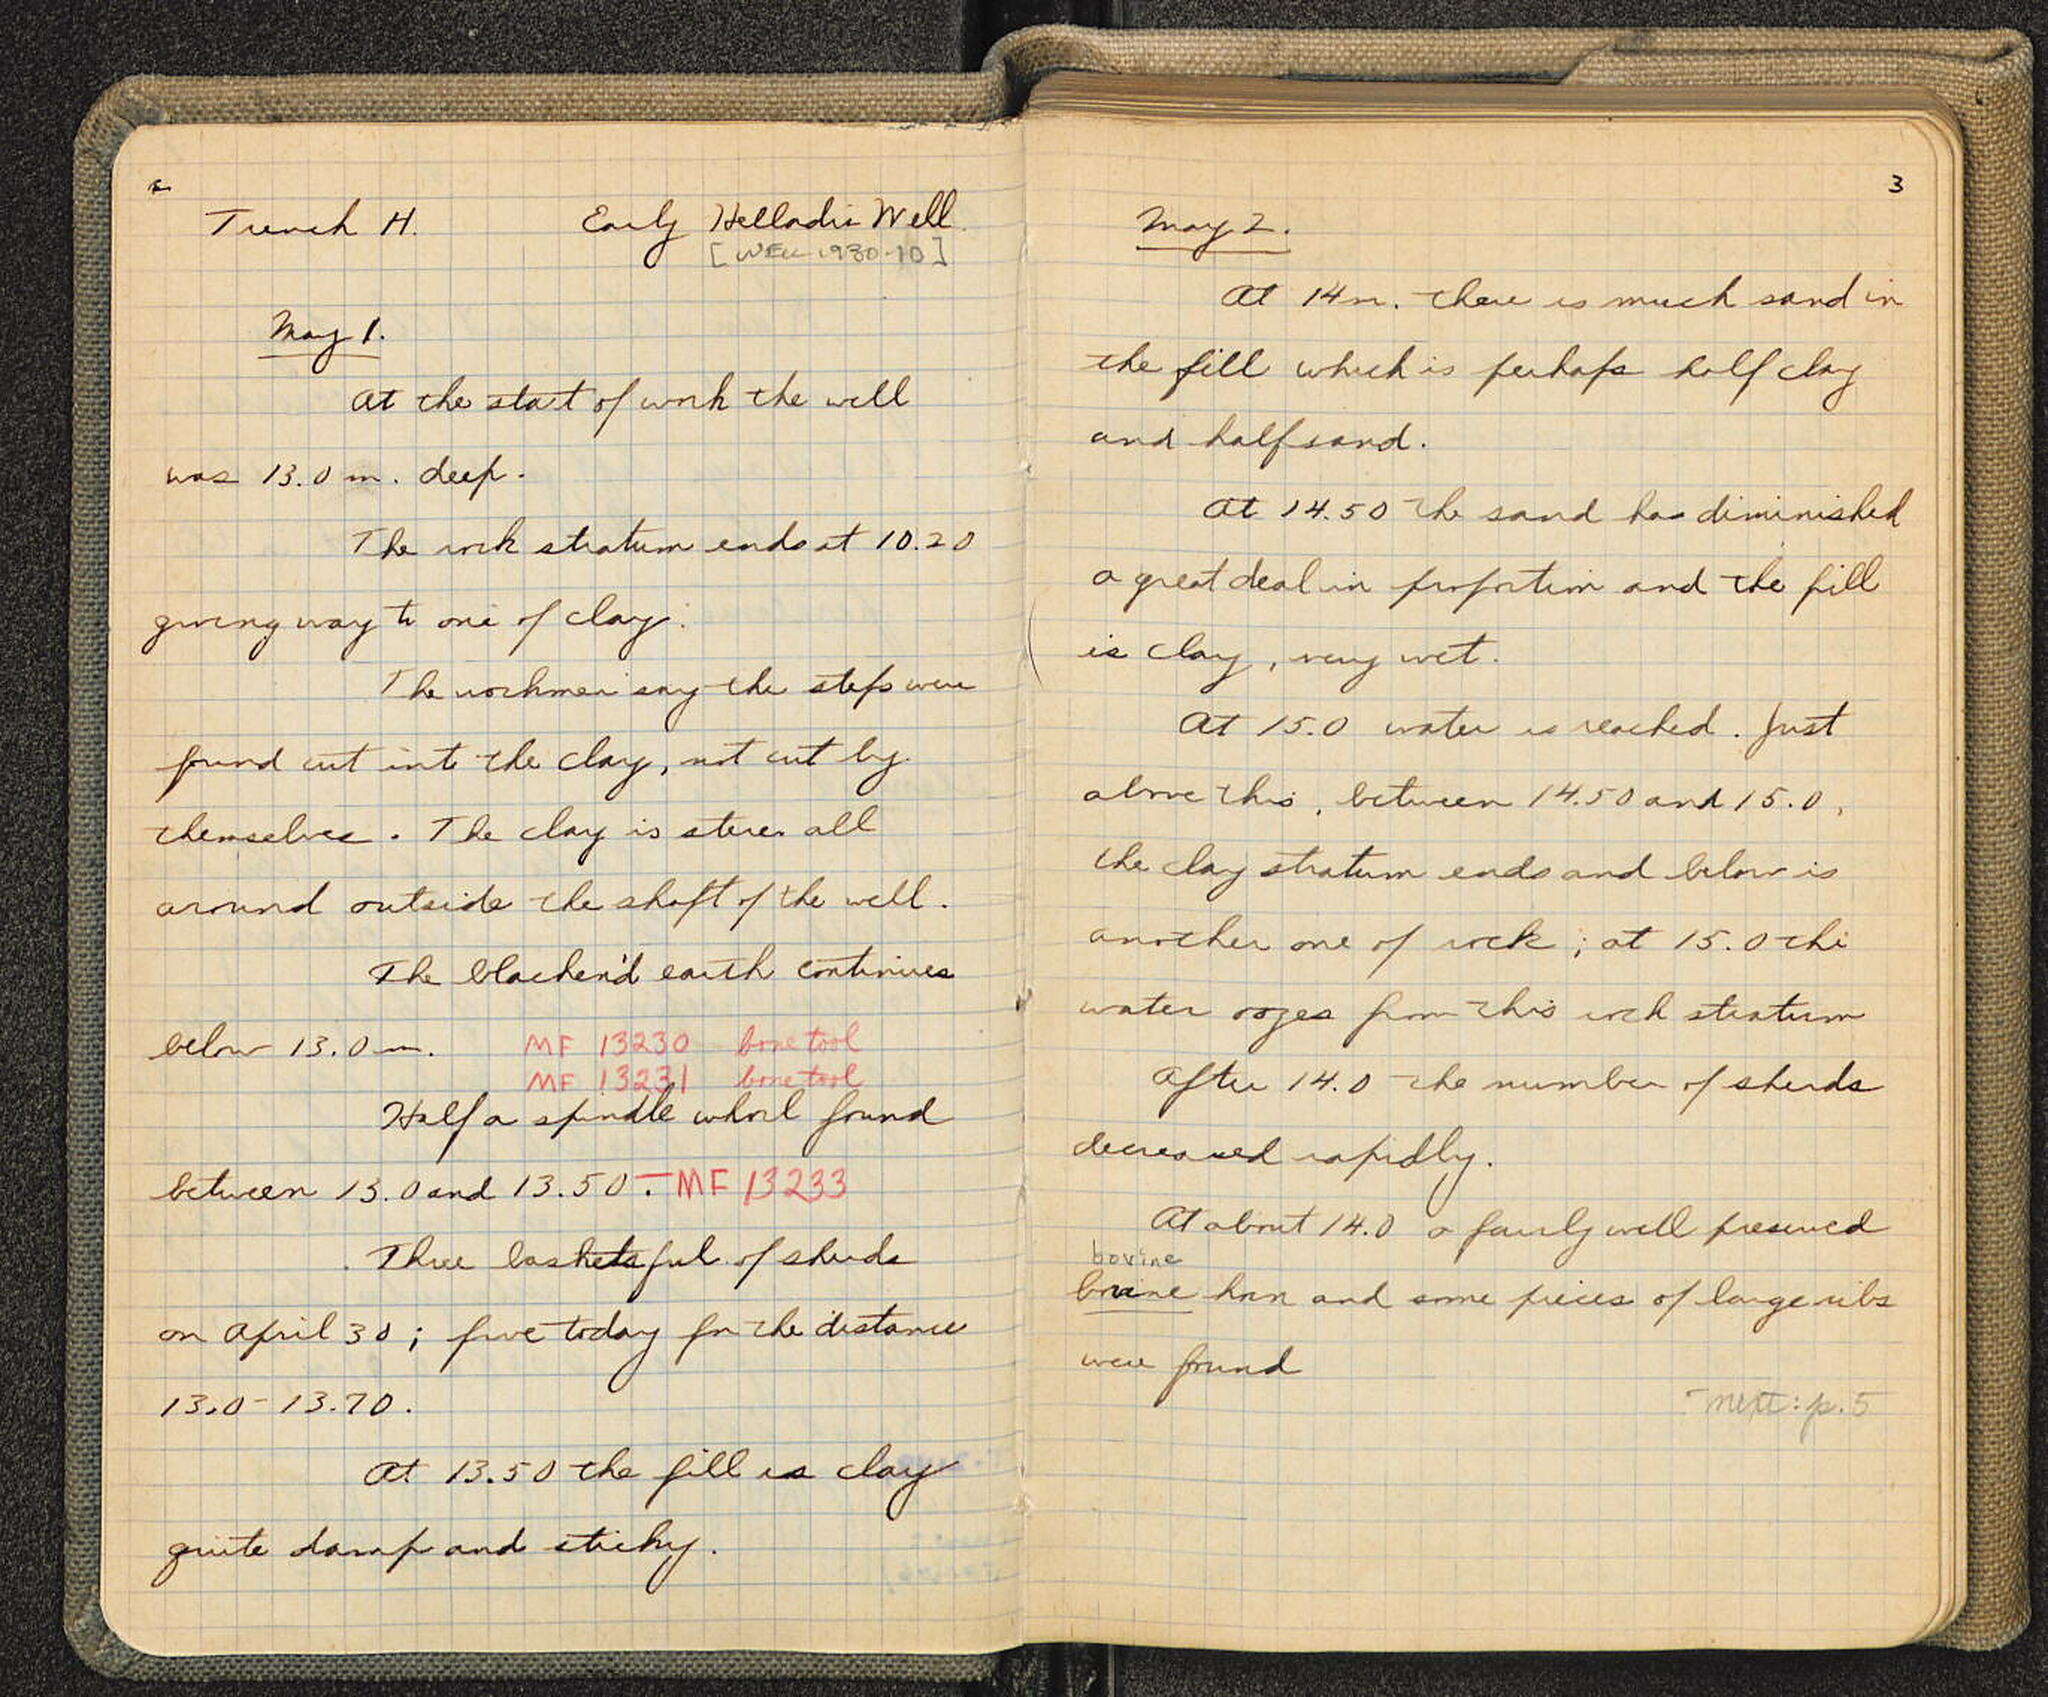 2
Trench H. Early Helladic Well
[WELL 1930-10]
May 1.
At the start of work the well
was 13.0 m. deep.
The rock stratum ends at 10.20
giving way to one of clay.
The workmen say the steps were
found cut into the clay, not cut by
themselves. The clay is stereo all
around outside the shaft of the well.
The blacken'd earth continues
below 13.0 m. MF 13230 bone tool
MF 13231 bone tool
Half a spindle whorl found
between 13.0 and 13.50. - MF 13233
Three basketsful of sherds
on April 30; five today for the distance
13.0 - 13.70.
At 13.50 the fill is clay
quite damp and sticky.
3
May 2.
At 14 m. there is much sand in
the fill which is perhaps half clay
and half sand.
At 14.50 the sand has diminished
a great deal in proportion and the fill
is clay, very wet.
At 15.0 water is reached. Just
above this, between 14.50 and 15.0,
the clay stratum ends and below is
another one of rock; at 15.0 the
water oozes from this rock stratum
After 14.0 the number of sherds
decreased rapidly.
At about 14.0 a fairly well preserved
bovine
bovine horn and some pieces of large ribs
were found
Next: p. 5